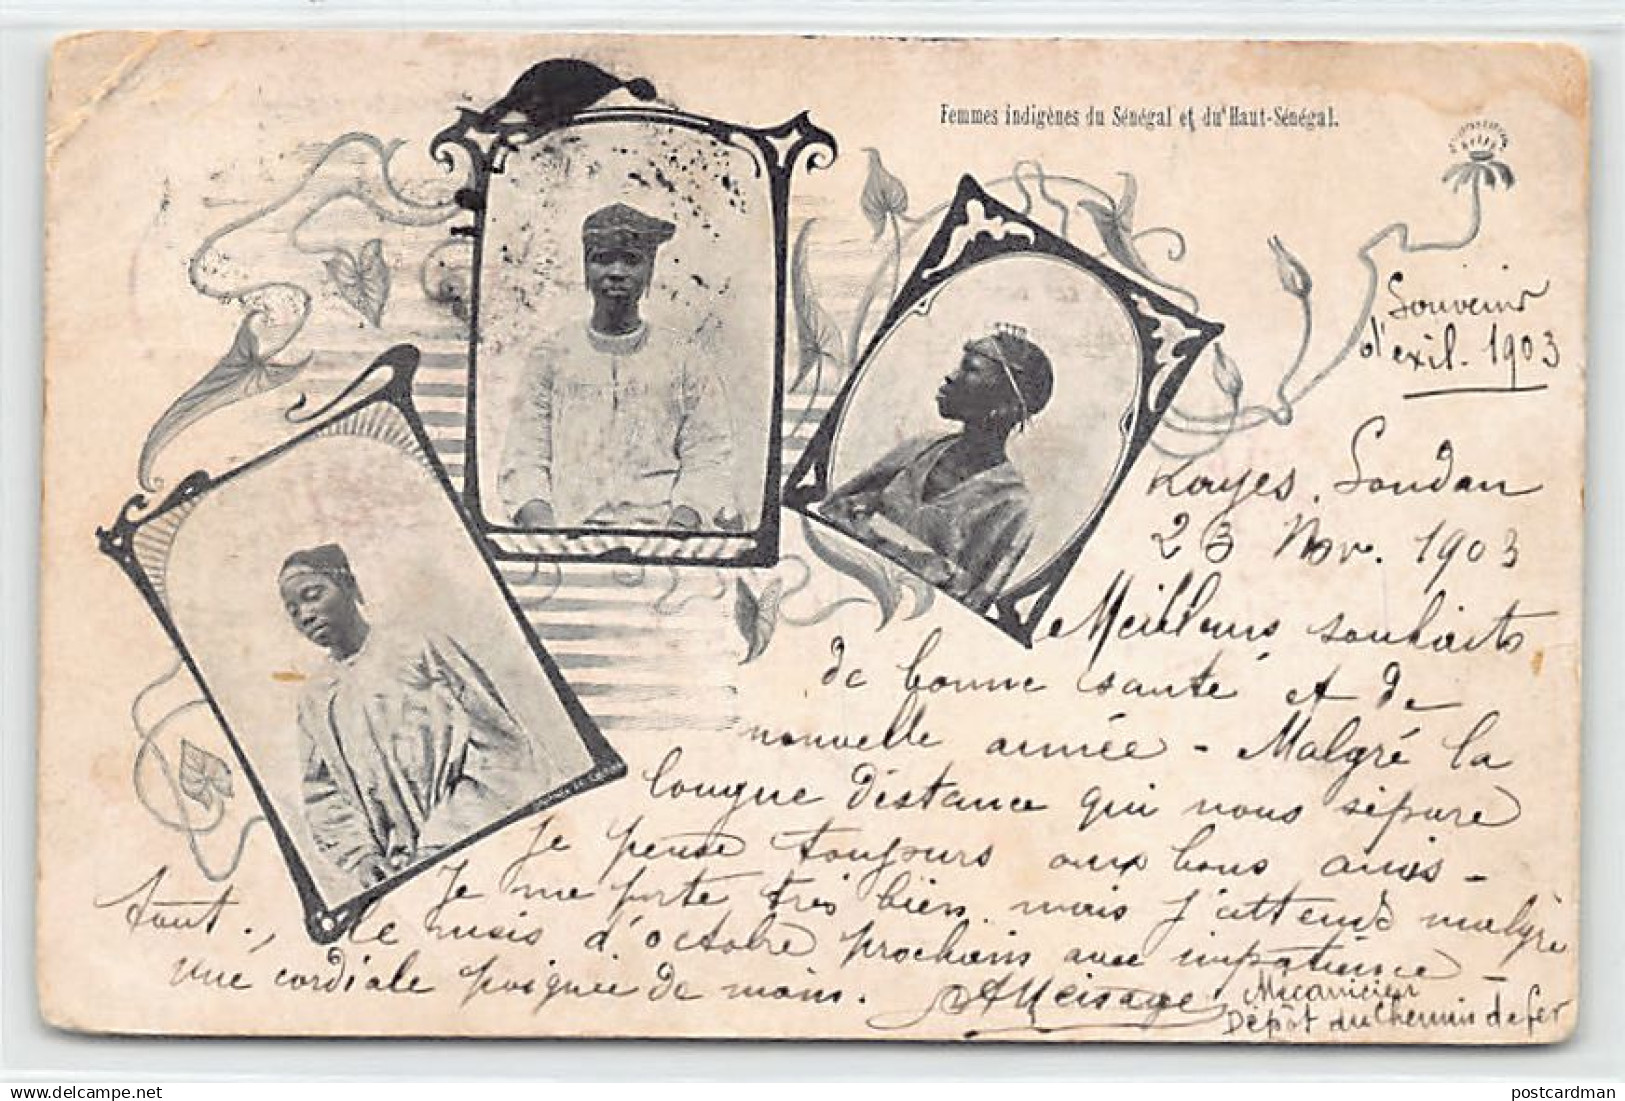 Femmes indigènes du Sénégal et du Haut-Sénégal.
Souvenir
d'exil. 1903
Kayes. Soudan
23 Nov. 1903
Meilleurs souhaits
de bonne santé et de
nouvelle année - Malgré la
longue distance qui nous sépare
je pense toujours aux bons amis -
Je me porte très bien, mais j'attends malgré
tout., le mois d'octobre prochain avec impatience -
une cordiale poignée de main. AMeisage
Mécanicien
Dépôt du Chemin de fer
postcardman